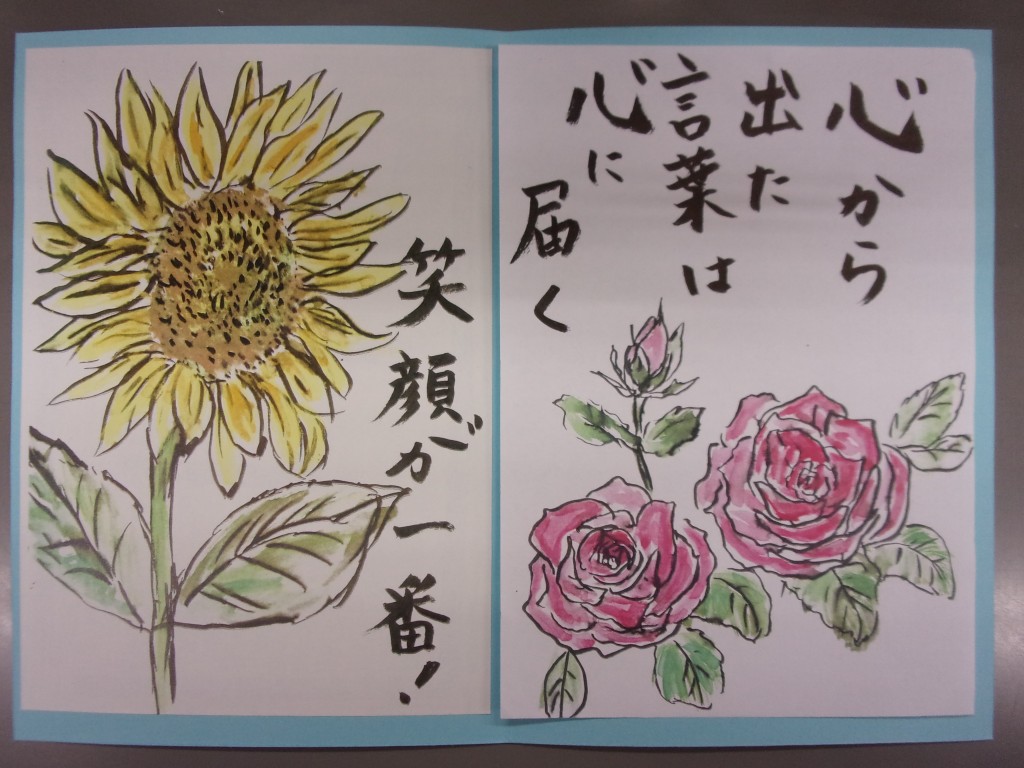 心から
出た
言葉は
心に
届く
笑顔が一番!